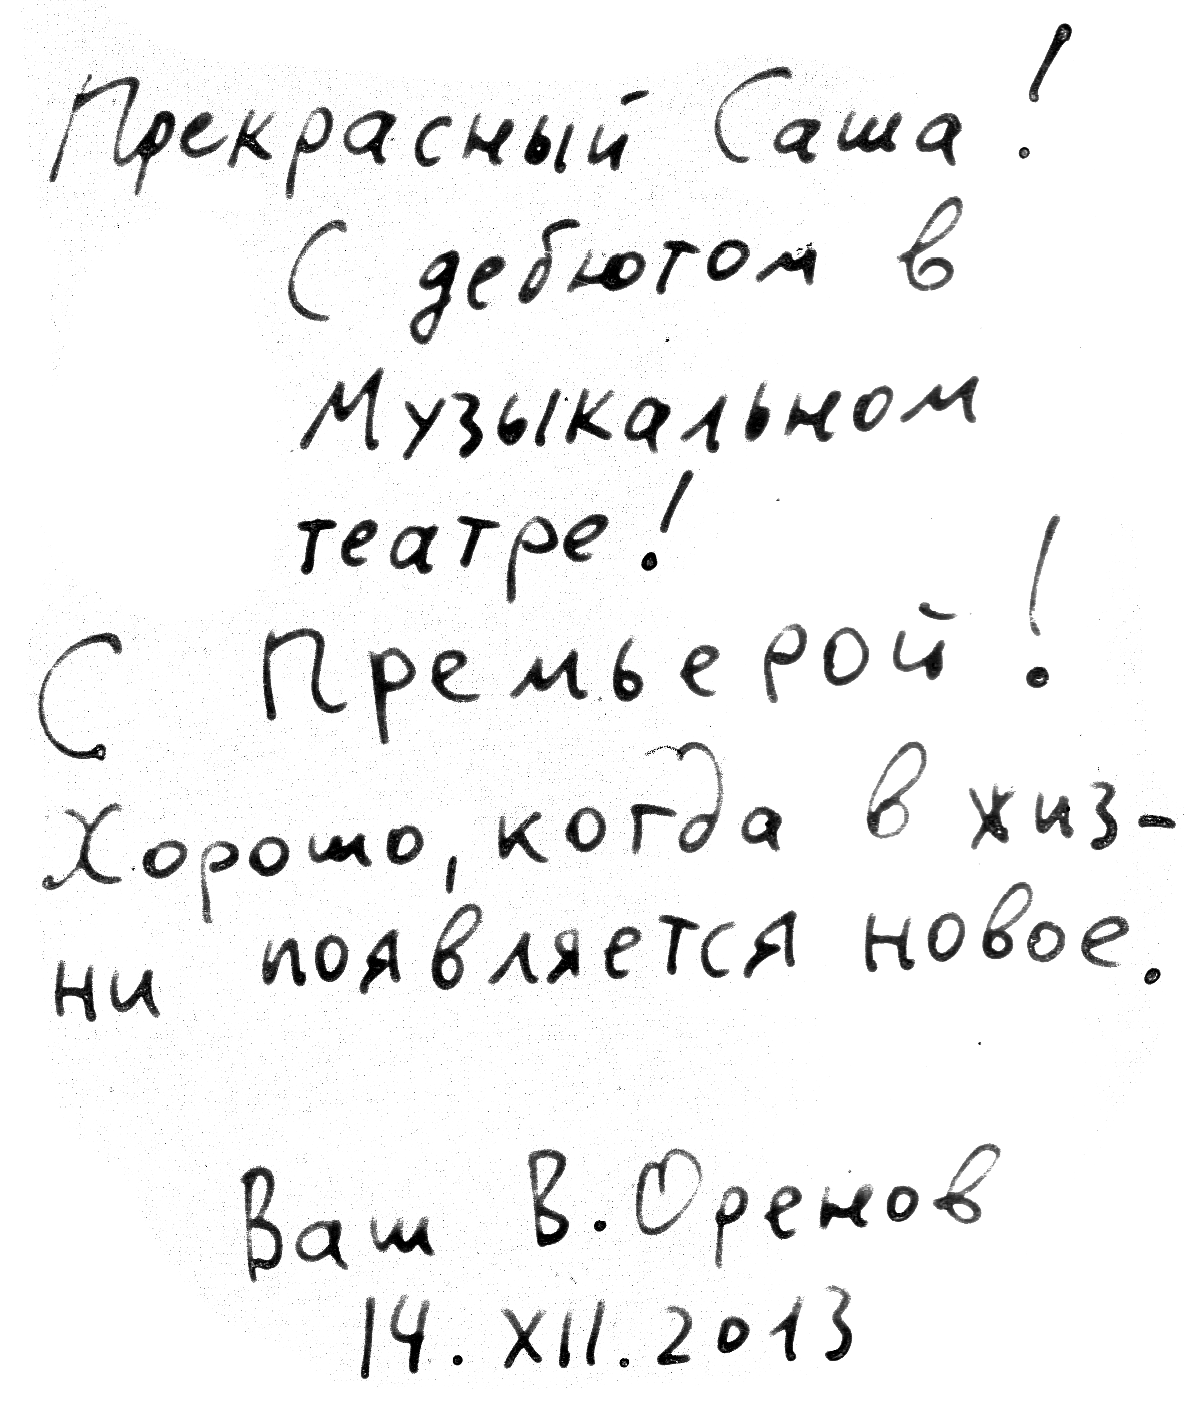 Прекрасный Саша!
С дебютом в
Музыкальном
театре!
С Премьерой!
Хорошо, когда в жиз-
ни появляется новое.
Ваш В. Оренов
14. XII. 2013